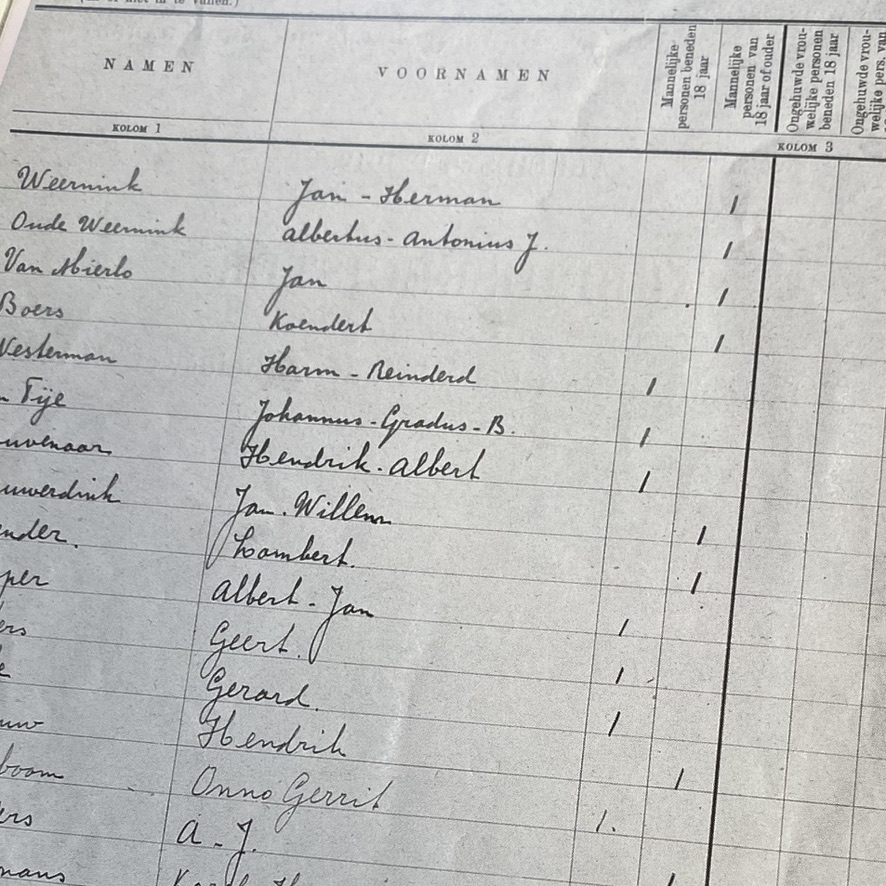 NAMEN VOORNAMEN Mannelijke personen beneden 18 jaar Mannelijke personen van 18 jaar of ouder Ongehuwde vrouwelijke personen beneden 18 jaar Ongehuwde vrouwelijke pers. van
KOLOM 1 KOLOM 2 KOLOM 3
Weernink Jan - Herman /
Oude Weernink albertus - antonius J. /
Van Mierlo Jan /
Boers Koendert /
Westerman Harm - Reinderd /
Tije Johannus - Gradus - B. /
uvenaar Hendrik - albert /
uwerdink Jan. Willem /
ender. Lambert. /
per albert - Jan /
ers Geert. /
Gerard. /
uw Hendrik /
boom Onno Gerrit /.
ers A - J.
mans